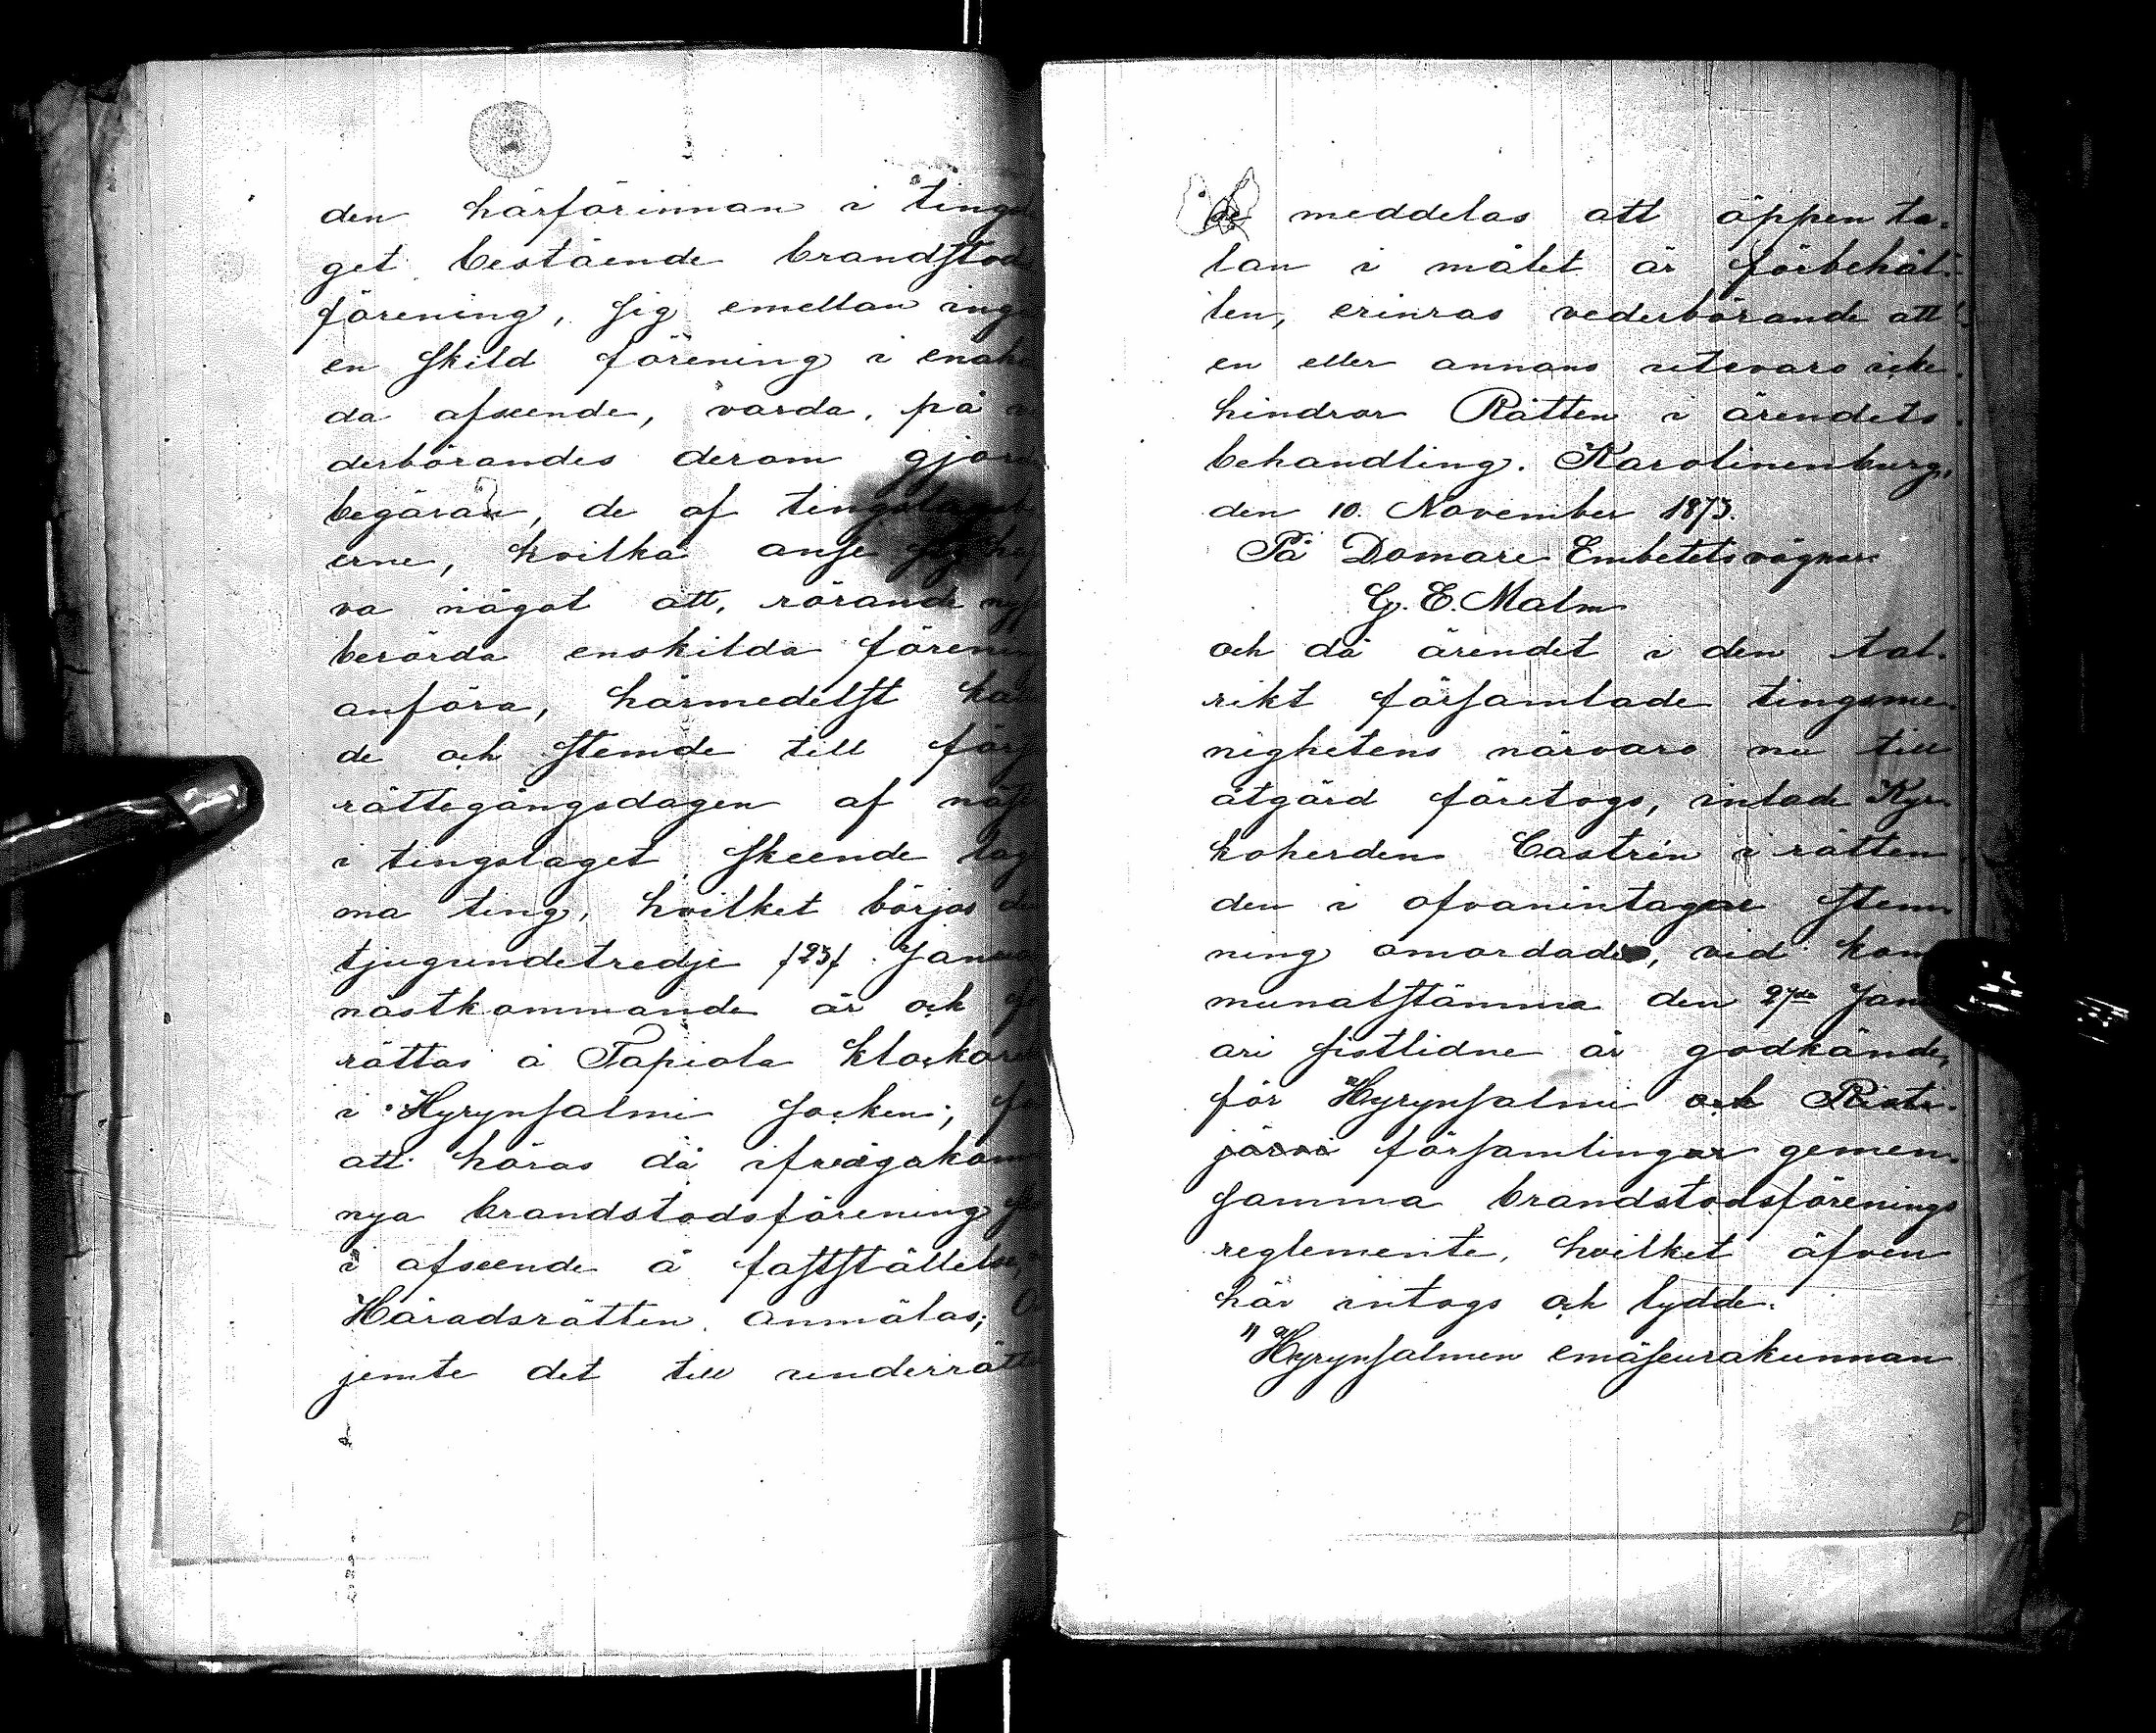 den härförinnan i tings
get bestående brandstod
förening, sig emellan ingå
en skild förening i enaha
da afseende, varda, på ve
derbörandes derom gjord
begäran, de af tingslaget
erne, hvilka anse sig haf
va något att, rörande nyss
berörda enskilda förening
anföra, härmedelst kal
de och stemde till förs
rättegångsdagen af näst
i tingslaget skeende lag
ma ting, hvilket börjas den
tjugundetredje /23/ Janua
nästkommande år och
rättas å Tapiola klockare
i Hyrynsalmi socken; fö
att höras då ifrågakom
nya brandstodsförening
i afseende å fastställelse,
Häradsrätten anmälas;
jemte det till underrätt
de meddelas att öppen ta-
lan i målet är förbehål-
len, erinras vederbörande att
en eller annans utevaro icke
hindrar Rätten i ärendets
behandling. Karolinenburg,
den 10. November 1873.
På Domare Embetets vägnar
G. E. Malm
och då ärendet i den tal-
rikt församlade tingsme-
nighetens närvaro nu till
åtgärd företogs, inlade Kyr-
koherden Castrén i rätten
den i ofvanintagne stem-
ning omordade, vid kom
munalstämma den 27de Janu
ari sistlidne år godkände,
för Hyrynsalmi och Risti-
järvi församlingar gemen-
samma brandstodsförenings
reglemente, hvilket äfven
här intogs och lydde:
"Hyrynsalmen emäseurakunnan